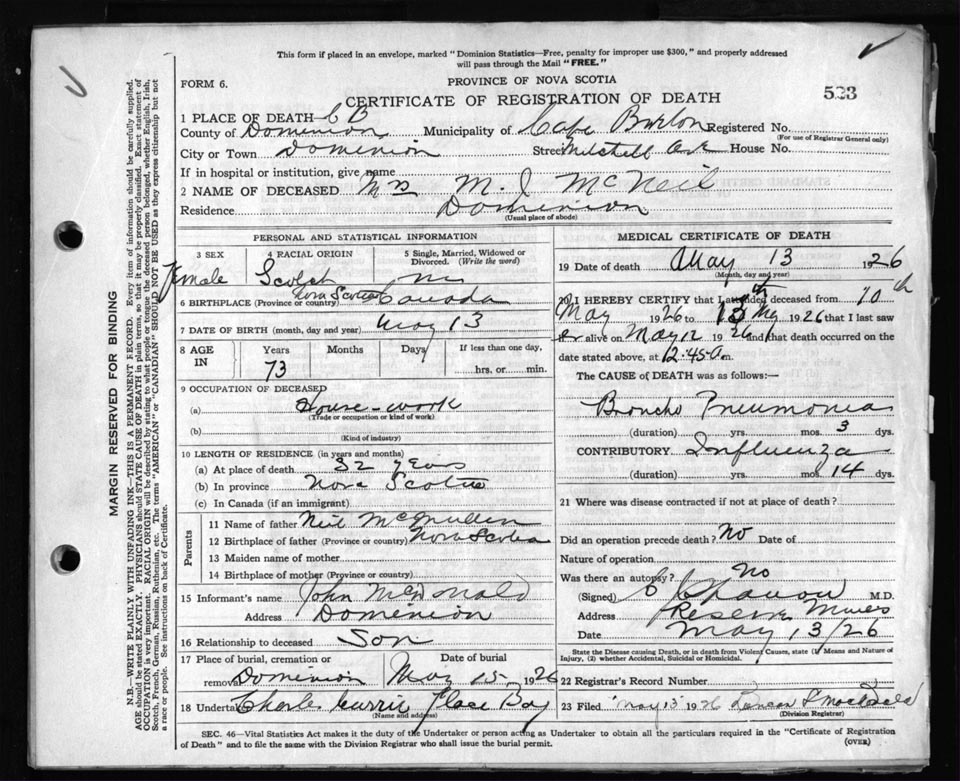 This form if placed in an envelope, marked "Dominion Statistics—Free, penalty for improper use $300," and properly addressed
will pass through the Mail "FREE."
FORM 6.
PROVINCE OF NOVA SCOTIA
CERTIFICATE OF REGISTRATION OF DEATH
523
1 PLACE OF DEATH— C B
County of Dominion Municipality of Cape Breton Registered No.
(For use of Registrar General only)
City or Town Dominion Street Mitchell Ave House No.
If in hospital or institution, give name
2 NAME OF DECEASED Mrs M. J McNeil
Residence Dominion
(Usual place of abode)
PERSONAL AND STATISTICAL INFORMATION
3 SEX 4 RACIAL ORIGIN 5 Single, Married, Widowed or Divorced. (Write the word)
Female Scotch m
6 BIRTHPLACE (Province or Country) Nova Scotia Canada
7 DATE OF BIRTH (month, day and year) May 13
8 AGE IN Years Months Days If less than one day,
73 hrs. or min.
9 OCCUPATION OF DECEASED
(a) House-work
(Trade or occupation or kind of work)
(b)
(Kind of industry)
10 LENGTH OF RESIDENCE (in years and months)
(a) At place of death 32 years
(b) In province Nova Scotia
(c) In Canada (if an immigrant)
Parents
11 Name of father Neil McMullen
12 Birthplace of father (Province or country) Nova Scotia
13 Maiden name of mother
14 Birthplace of mother (Province or country)
15 Informant's name John McDonald
Address Dominion
16 Relationship to deceased Son
17 Place of burial, cremation or removal Date of burial
Dominion May 15 1926
18 Undertaker Charles Currie Glace Bay
(Name and address)
MEDICAL CERTIFICATE OF DEATH
19 Date of death May 13 1926
(Month, day and year)
20 I HEREBY CERTIFY that I attended deceased from 10th
May 1926 to 13th May 1926 that I last saw
er alive on May 12 1926 and that death occurred on the
date stated above, at 12.45 a m.
The CAUSE of DEATH was as follows:—
Broncho Pneumonia
(duration) yrs. mos. 3 dys.
CONTRIBUTORY Influenza
(duration) yrs. mos. 14 dys.
21 Where was disease contracted if not at place of death?
Did an operation precede death? No Date of
Nature of operation
Was there an autopsy? No
(Signed) M.D.
Address Reserve Mines
Date May 13/26
State the Disease causing Death, or in death from Violent Causes, state (1) Means and Nature of
Injury, (2) whether Accidental, Suicidal or Homicidal.
22 Registrar's Record Number
23 Filed May 13 1926
(Division Registrar)
SEC. 46—Vital Statistics Act makes it the duty of the Undertaker or person acting as Undertaker to obtain all the particulars required in the "Certificate of Registration
of Death" and to file the same with the Division Registrar who shall issue the burial permit.
(OVER)
MARGIN RESERVED FOR BINDING
N.B.—WRITE PLAINLY WITH UNFADING INK—THIS IS A PERMANENT RECORD. Every item of information should be carefully supplied.
AGE should be stated EXACTLY. PHYSICIANS should STATE CAUSE OF DEATH in plain terms, so that it may be properly classified. Exact statement of
OCCUPATION is very important. RACIAL ORIGIN will be described by stating to what people or tongue the deceased person belonged, whether English, Irish,
Scotch, French, German, Russian, Ruthenian, etc. The terms "AMERICAN" or "CANADIAN" SHOULD NOT BE USED as they express citizenship but not
a race or people. See instructions on back of Certificate.